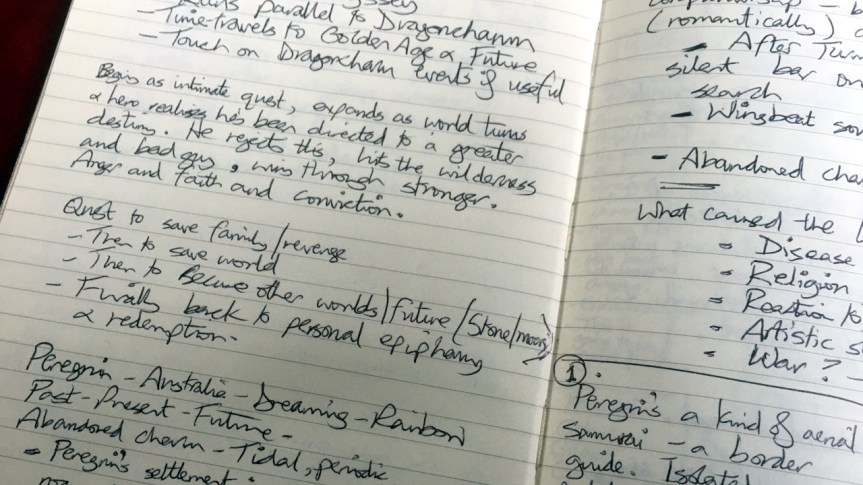 parallel to Dragoncharm
- Time-travels to Golden Age & Future
- Touch on Dragoncharm events if useful
Begins as intimate quest, expands as world turns
& hero realises he's been directed to a greater
destiny. He rejects this, hits the wilderness
and bad guy, wins through stronger.
Anger and faith and conviction.
Quest to save family/revenge
- Then to save world
- Then to become other worlds/future/(Stone/moons)
- Finally back to personal epiphany
& redemption.
Peregrin - Australia - Dreaming - Rainbow
Past - Present - Future -
Abandoned charm - Tidal, periodic
- Peregrin's settlement
(romantically)
- After Turn
silent bar on
search
- Wingbeat
- Abandoned
What caused the
- Disease
- Religion
- Reaction to
- Artistic
- War?
1.
Peregrin's a kind of aerial
samurai - a border
guide.